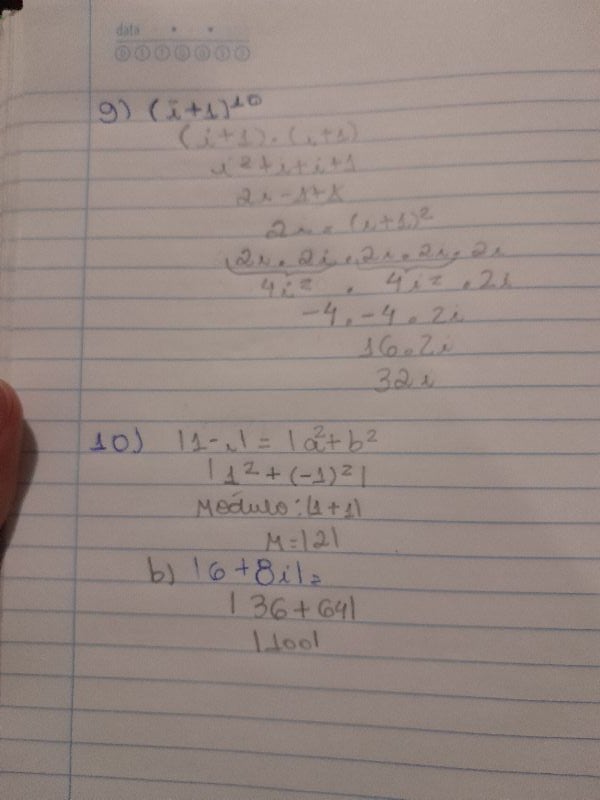 data
9) (i+1)¹⁰
(i+1).(i+1)
i²+i+i+1
2i-1+1
2i = (i+1)²
2i.2i.2i.2i.2i
4i² . 4i² .2i
-4.-4.2i
16.2i
32i
10) |1-i| = |a²+b²
|1²+(-1)²|
Módulo:|1+1|
M=|2|
b) |6+8i|=
|36+64|
|100|